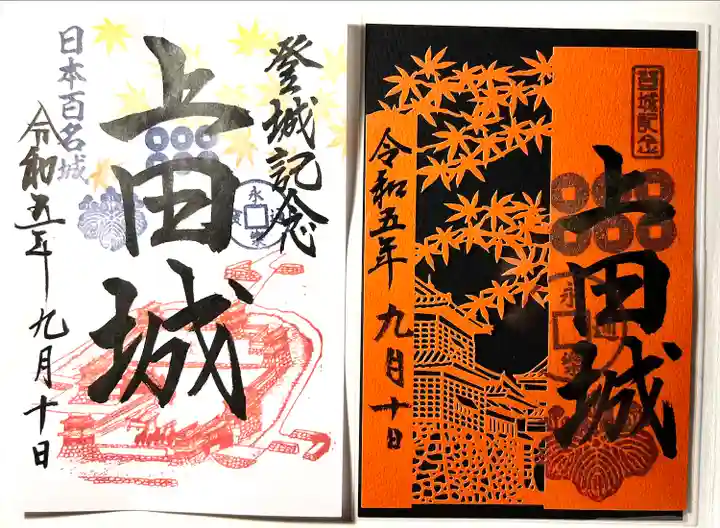 登城記念
上田城
日本百名城
令和五年九月十日
永
楽
登城記念
上田城
永
通
楽
令和五年九月十日